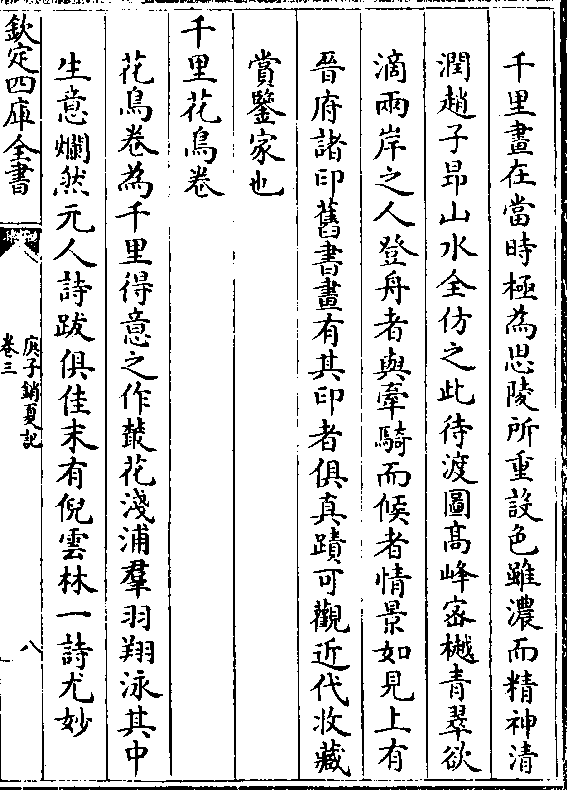 千里畫在當時極為思陵所重設色雖濃而精神清
潤趙子昂山水全仿之此待渡圖髙峰宻樾青翠欲
滴兩岸之人登舟者與牽騎而候者情景如見上有
晉府諸印舊書畫有其印者俱真蹟可觀近代收藏
賞鑒家也
千里花鳥卷
花鳥卷為千里得意之作叢花淺浦羣羽翔泳其中
生意爛然元人詩跋俱佳末有倪雲林一詩尤妙
欽定四庫全書
庚子銷夏記
卷三
八